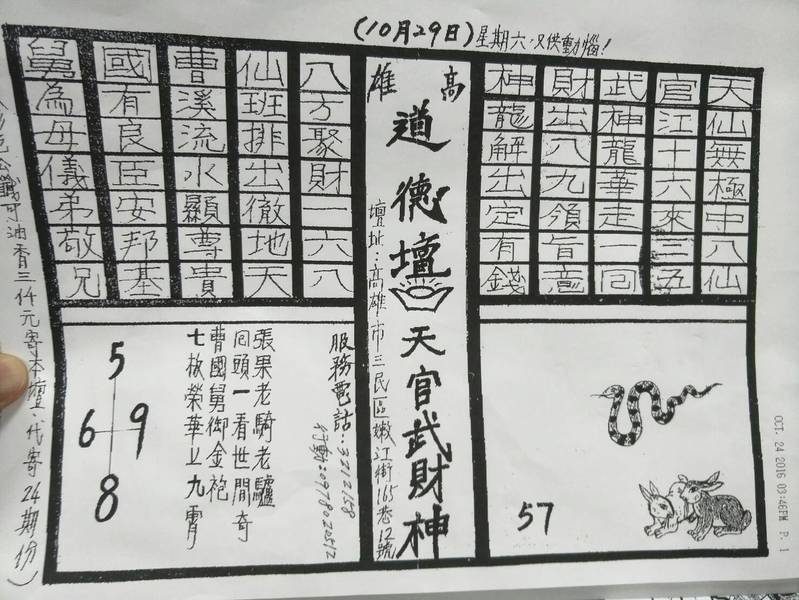 (10月29日)星期六.只供動惱!
天仙無極中八仙
官江十六來三五
武神龍華走一回
財出八九領旨意
神龍解出定有錢
高雄
道德壇 天官武財神
壇址:高雄市三民區嫩江街165巷12號
八方聚財一六八
仙班排出徹地天
曹溪流水顯尊貴
國有良臣安邦基
舅為母儀弟敬兄
57
服務電話:3212158
行動:0978020512
張果老騎老驢
回頭一看世間奇
曹國舅御金袍
七板榮華上九霄
5
6 9
8
油香三仟元寄本壇.代寄24期份)
OCT. 24 2016 03:46PM P. 1